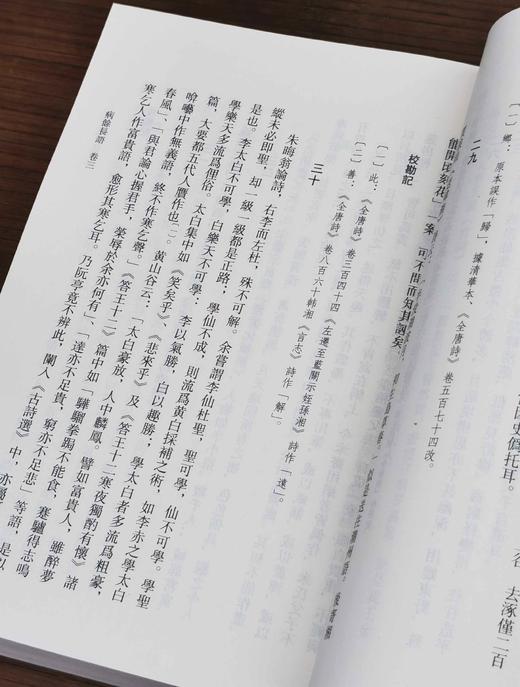 去涿僅二百
偽托耳。
〔一〕鄉：原本誤作「歸」，據清華本、《全唐詩》卷五百七十四改。
二九
能開頃刻花」一案，可不問而知其謬矣。
校勘記
〔一〕此：《全唐詩》卷三百四十四《左遷至藍關示姪孫湘》詩作「遠」。
〔二〕善：《全唐詩》卷八百六十韓湘《言志》詩作「解」。
三十
朱晦翁論詩，右李而左杜，殊不可解。余嘗謂李仙杜聖，聖可學，仙不可學。學聖
縱未必即聖，却一級一級都是正路；學仙不成，則流爲黃白採補之術，如李赤之學太白
是也。李太白不可學，白樂天不可學：李以氣勝，白以趣勝；學太白者多流爲粗豪，
學樂天多流爲俚俗。太白集中如《笑矣乎》、《悲來乎》及《答王十二寒夜獨酌有懷》諸
篇，大要都五代人贋作也〔一〕。黃山谷云：「太白豪放，人中麟鳳。譬如富貴人，雖醉夢
唅囈中作無義語，終不作寒乞聲。」《答王十二》篇中如「驊騮拳跼不能食，蹇驢得志鳴
春風」、「與君論心握君手，榮辱於余亦何有」、「達亦不足貴，窮亦不足悲」等語，是以
寒乞人作富貴語，愈形其寒乞耳。乃阮亭竟不辨此，闌入《古詩選》中，亦屬
病餘長語　卷三